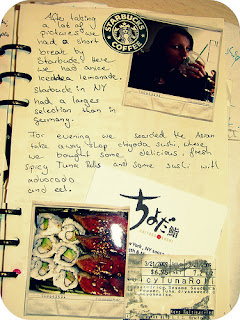 After taking
a lot of
pictures we
had a short
break by
Starbucks. Here
we had a nice
Iced lemonade.
Starbucks in NY
had a larger
selection than in
germany.
STARBUCKS
COFFEE
For evening we searched the Asian
take away shop chiyoda sushi, there
we bought some delicious, fresh
spicy Tuna Rolls and some sushi with
advocado
and eel.
ちよだ鮨
New York, NY
3/21/2009
cyTunaRoll